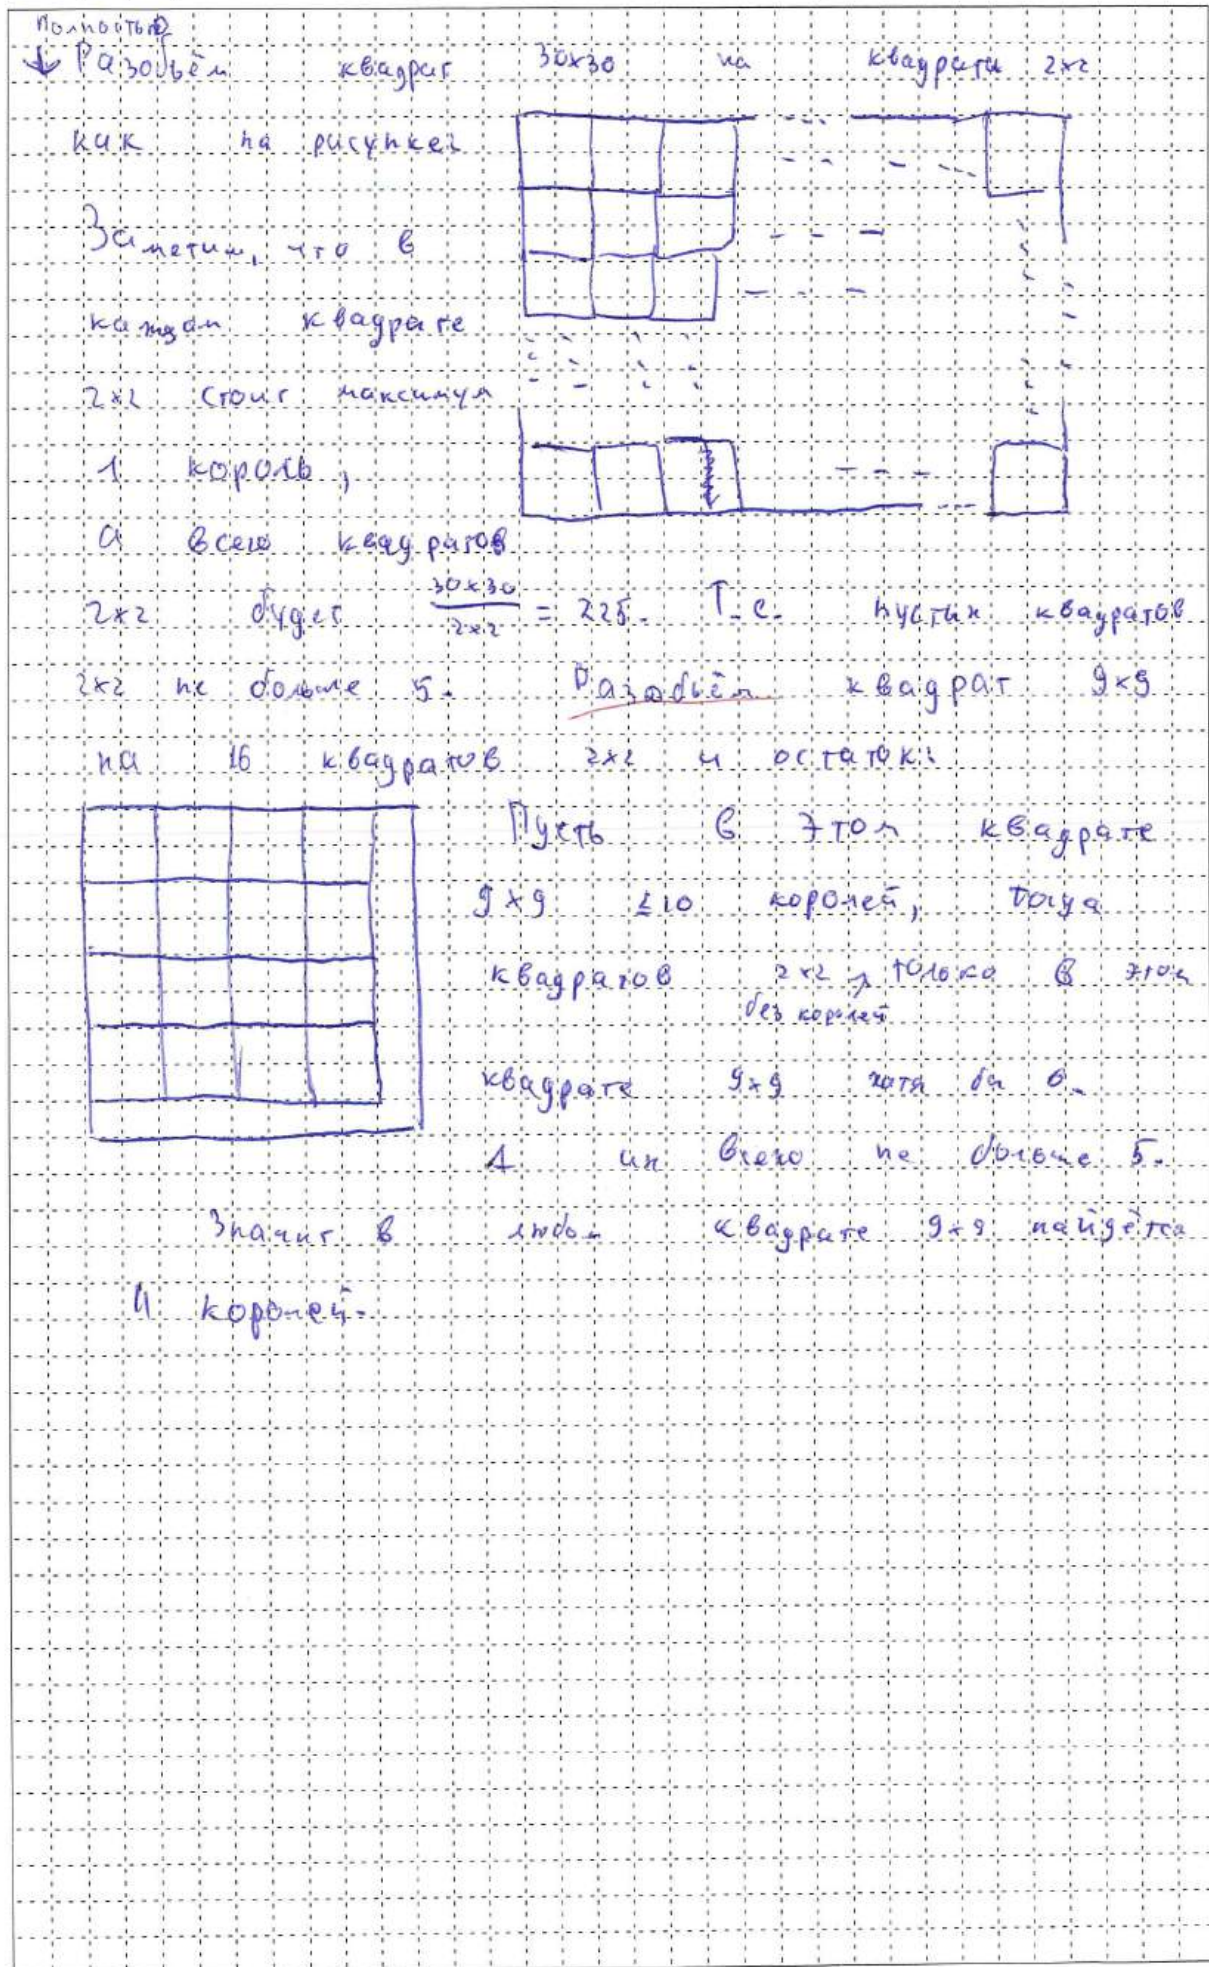 Полностью
Разобьём квадрат 30×30 на квадраты 2×2
как на рисунке:
Заметим, что в
каждом квадрате
2×2 стоит максимум
1 король,
а всего квадратов
2×2 будет 30×30 / 2×2 = 225. Т.е. пустых квадратов
2×2 не больше 5. Разобьём квадрат 9×9
на 16 квадратов 2×2 и остаток:
Пусть в этом квадрате
9×9 ≤10 королей, тогда
квадратов 2×2 только в этом
без королей
квадрате 9×9 хотя бы 6.
А их всего не больше 5.
Значит в любом квадрате 9×9 найдётся
11 королей.